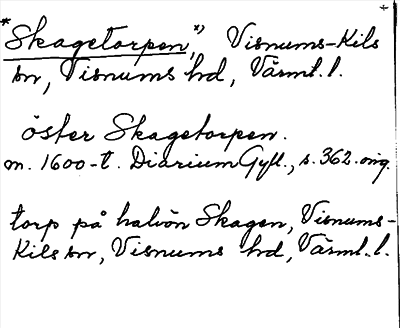 *Skagetorpen,*) Visnums-Kils
sn, Visnums hd, Värml. l.
öster Skagetorpen.
m. 1600-t. Diarium Gyll., s. 362. orig.
torp på halvön Skagen, Visnums-
Kils sn, Visnums hd, Värml. l.